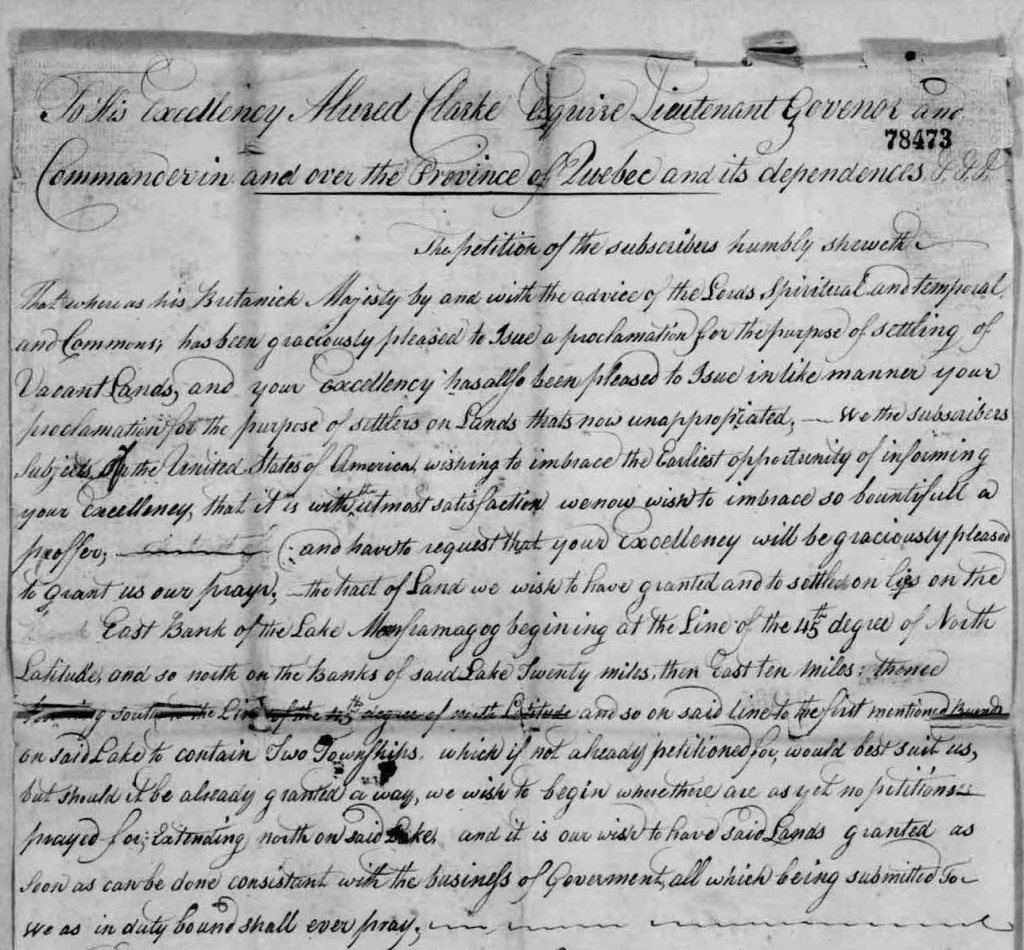 To His Excellency Alured Clarke Esquire Lieutenant Govenor and
78473
Commander in and over the Province of Quebec and its dependences &c &c &c
The petition of the subscribers humbly sheweth
That where as his Britanick Majisty by and with the advice of the Lords Spiritual and temporal,
and Commons; has been graciously pleased to Isue a proclamation for the purpose of settling of
Vacant Lands, and your Excellency has allso been pleased to Isue in like manner your
proclamation for the purpose of settlers on Lands thats now unappropriated; — We the subscribers
Subjects of the United States of America, wishing to imbrace the Earliest opportunity of informing
your Excellency, that it is with the utmost satisfaction we now wish to imbrace so bountifull a
proffer; (: and have to request that your Excellency will be graciously pleased
to grant us our prayr; — the tract of Land we wish to have granted and to settle on lies on the
East Bank of the Lake Memframagog begining at the Line of the 45th degree of North
Latitude, and so north on the Banks of said Lake Twenty miles, then East ten miles; thence
south the Line of the 45th degree of north Latitude and so on said line to the first mentioned Bounds
on said Lake to contain Two Townships. which if not already petitioned for, would best suit us,
but should it be already granted a way, we wish to begin where there are as yet no petitions
prayed for; Extending north on said Lake, and it is our wish to have said Lands granted as
soon as can be done consistant with the business of Goverment, all which being submitted To
We as in duty bound shall ever pray;